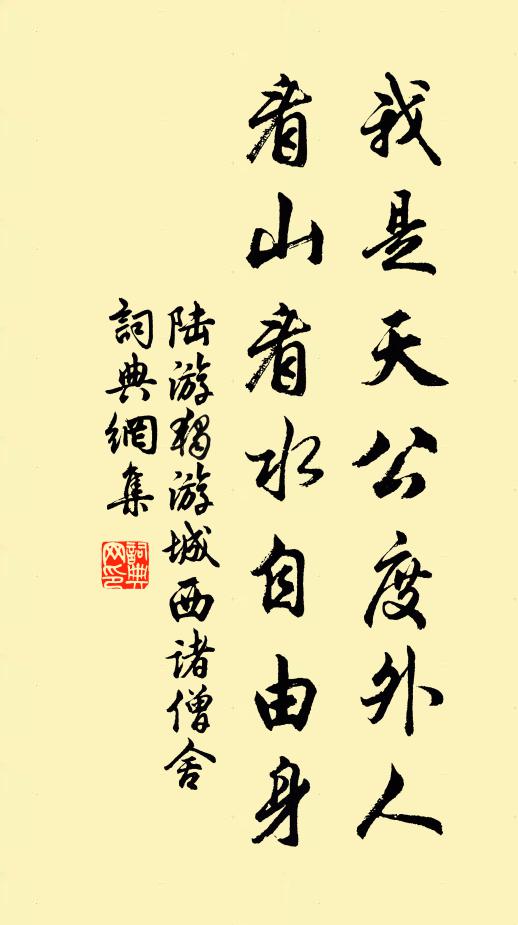 我是天公度外人
看山看水自由身
陆游獨游城西诸僧舍
詞典網集
詞典网印